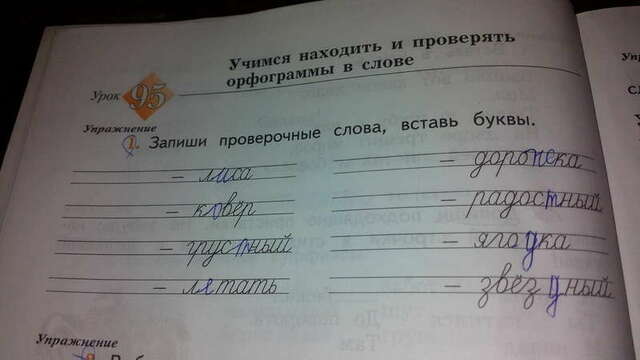 Учимся находить и проверять
орфограммы в слове
Урок 95
Упражнение
1. Запиши проверочные слова, вставь буквы.
– лиса – дорожка
– ковёр – радостный
– грустный – ягодка
– летать – звёздный
Упражнение